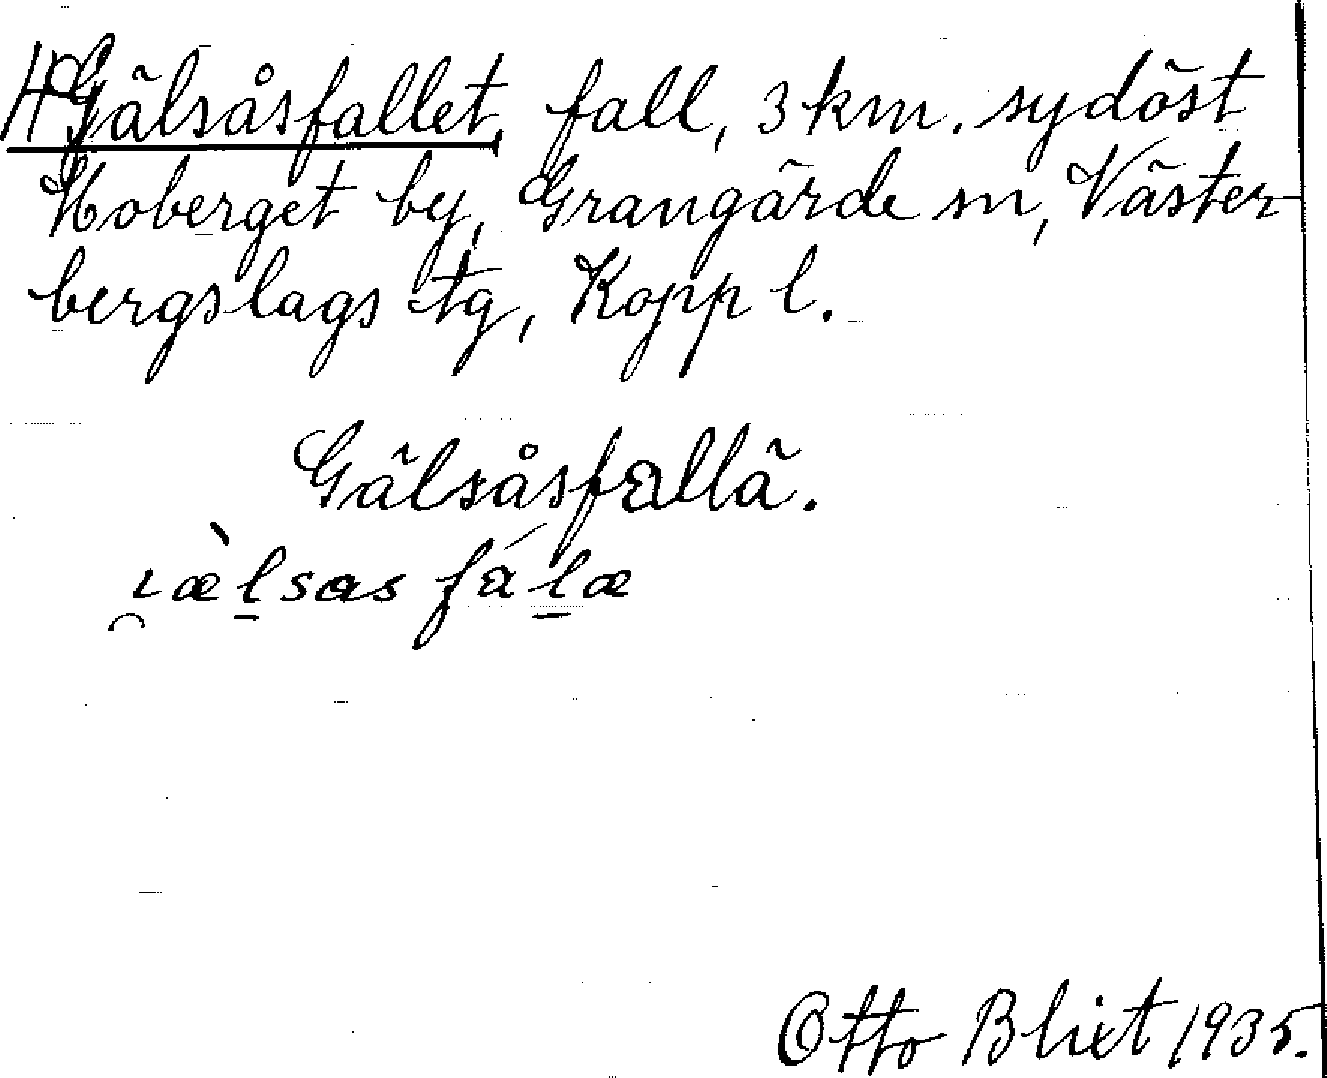 Gälsåsfallet, fall, 3 km. sydöst
Hoberget by, Grangärde sn, Väster-
bergslags tg, Kopp l.
Gälsåsfallä.
ɩæ̀lsɑs fálæ
Otto Blixt 1935.